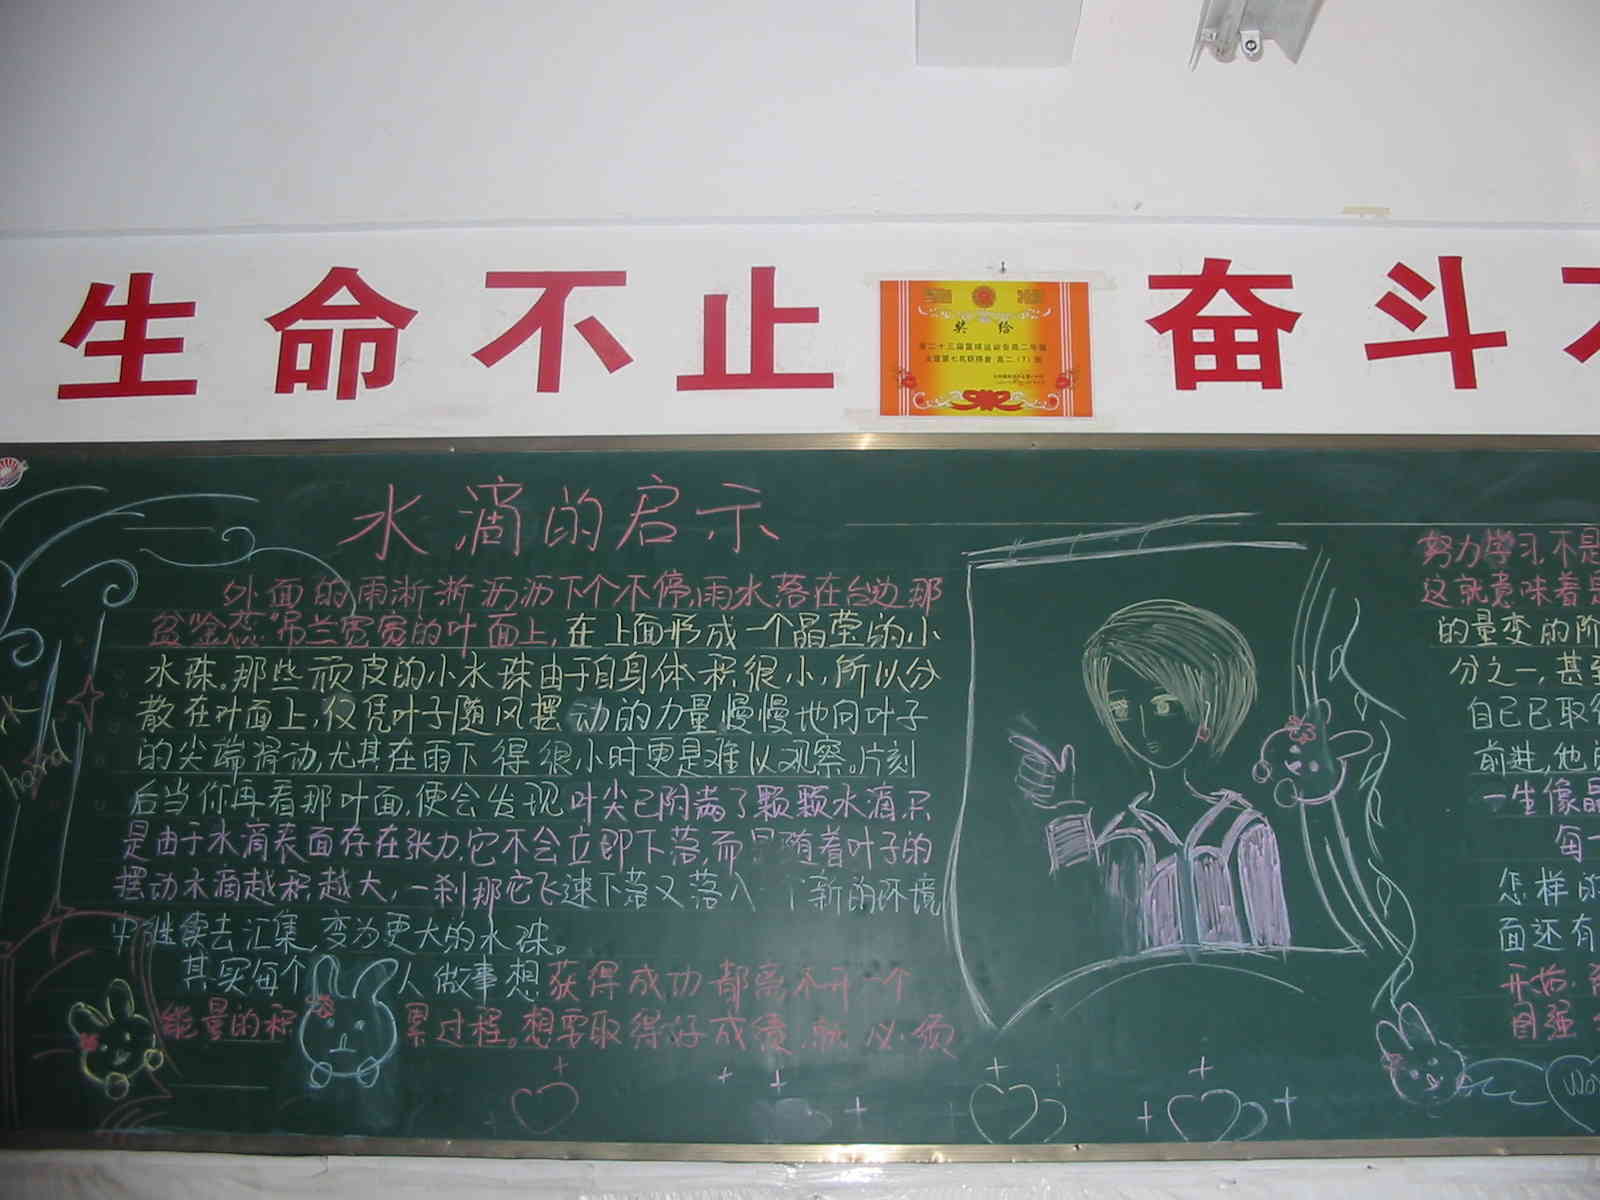 生命不止 奋斗不
奖给
第二十三届篮球运动会高二年级
女篮第七名获得者 高二(7)班
水滴的启示
外面的雨淅淅沥沥下个不停,雨水落在台边那
盆"金蕊"吊兰宽宽的叶面上,在上面形成一个晶莹的小
水珠。那些顽皮的小水珠由于自身体积很小,所以分
散在叶面上,仅凭叶子随风摆动的力量慢慢地向叶子
的尖端滑动,尤其在雨下得很小时更是难以观察。片刻
后当你再看那叶面,便会发现叶尖已附满了颗颗水滴只
是由于水滴表面存在张力,它不会立即下落,而是随着叶子的
摆动水滴越积越大,一刹那它飞速下落又落入 个新的环境
中继续去汇集,变为更大的水珠。
其实每个人做事想获得成功都离不开一个
能量的积累过程。想要取得好成绩,就必须
努力学习,不是
这就意味着是
的量变的阶
分之一,甚至
自己已取得
前进,他
一生像晶
每一
怎样的
面还有
开始,
自强
hard